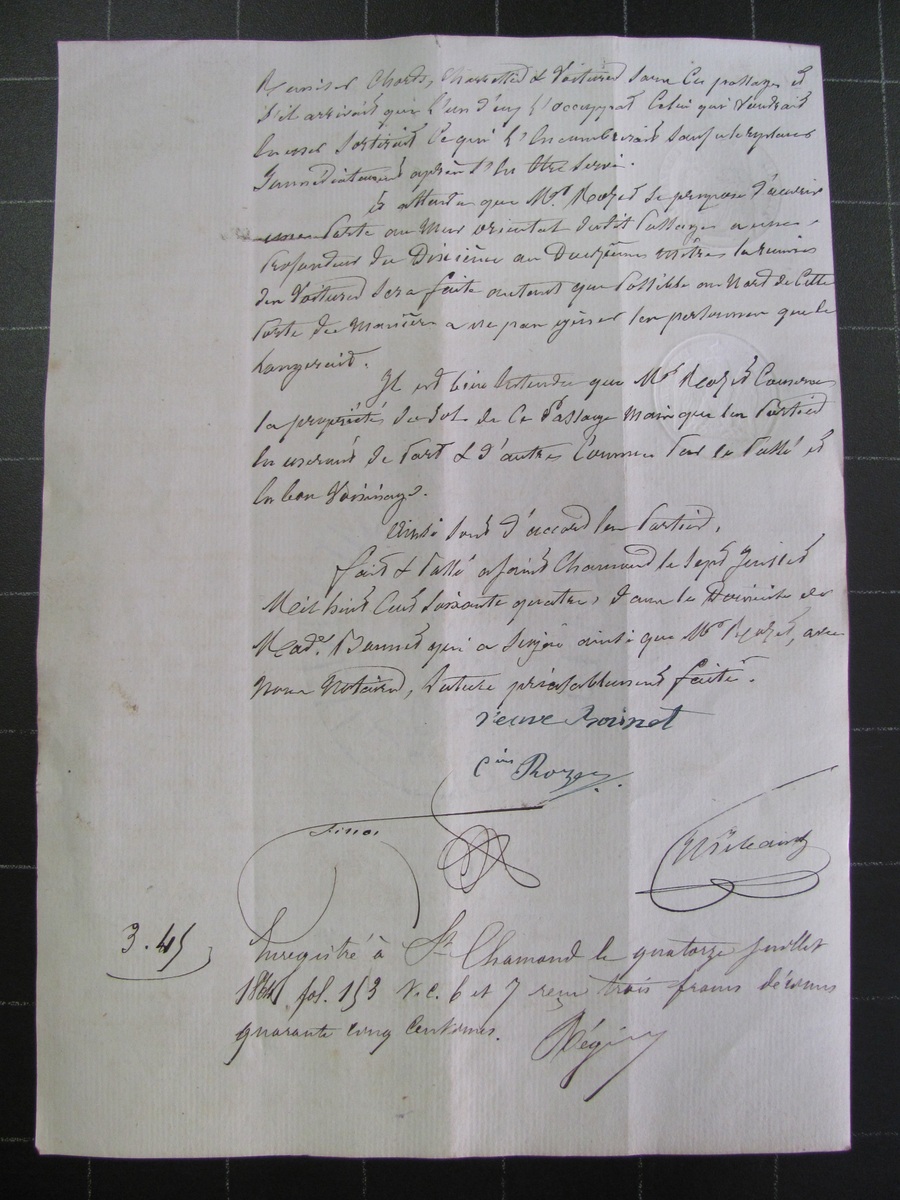 Remiser Chars, Charrettes & Voitures dans Ce passage et
S'il arrivait que l'un d'eux l'occuppat Celui qui Voudrait
en user Sortirait Ce qui l'Encombrerait Sauf à le replacer
Immédiatement après s'en être Servi.
Et attendu que Mr. Rozet Se propose d'ouvrir
une Porte au Mur oriental dudit Passage
Profondeur du Dixième au Douzième mètres la remise
des Voitures Sera faite autant que Possible au Nord de Cette
Porte de Manière a ne pas gêner les personnes que
Il est bien Entendu que Mr. Rozet Conserve
la propriété du Sol de Ce Passage Mais que les Parties
En useront de Part & d'autre Comme Par le Passé et
En bon Voisinage.
Ainsi Sont d'accord les Parties,
fait & Passé a Saint Chamond le Sept Juillet
Mil huit Cent Soixante quatre, dans le Domicile de
Made. qui a Signé ainsi que Mr. Rozet, avec
Nous Notaires, Lecture préalablement faite.
Veuve
Rozet
Finas
3.45
Enregistré à St Chamond le quatorze juillet
1864 fol. 153 V. c. 6 et 7 reçu trois francs décimes
quarante cinq Centimes.